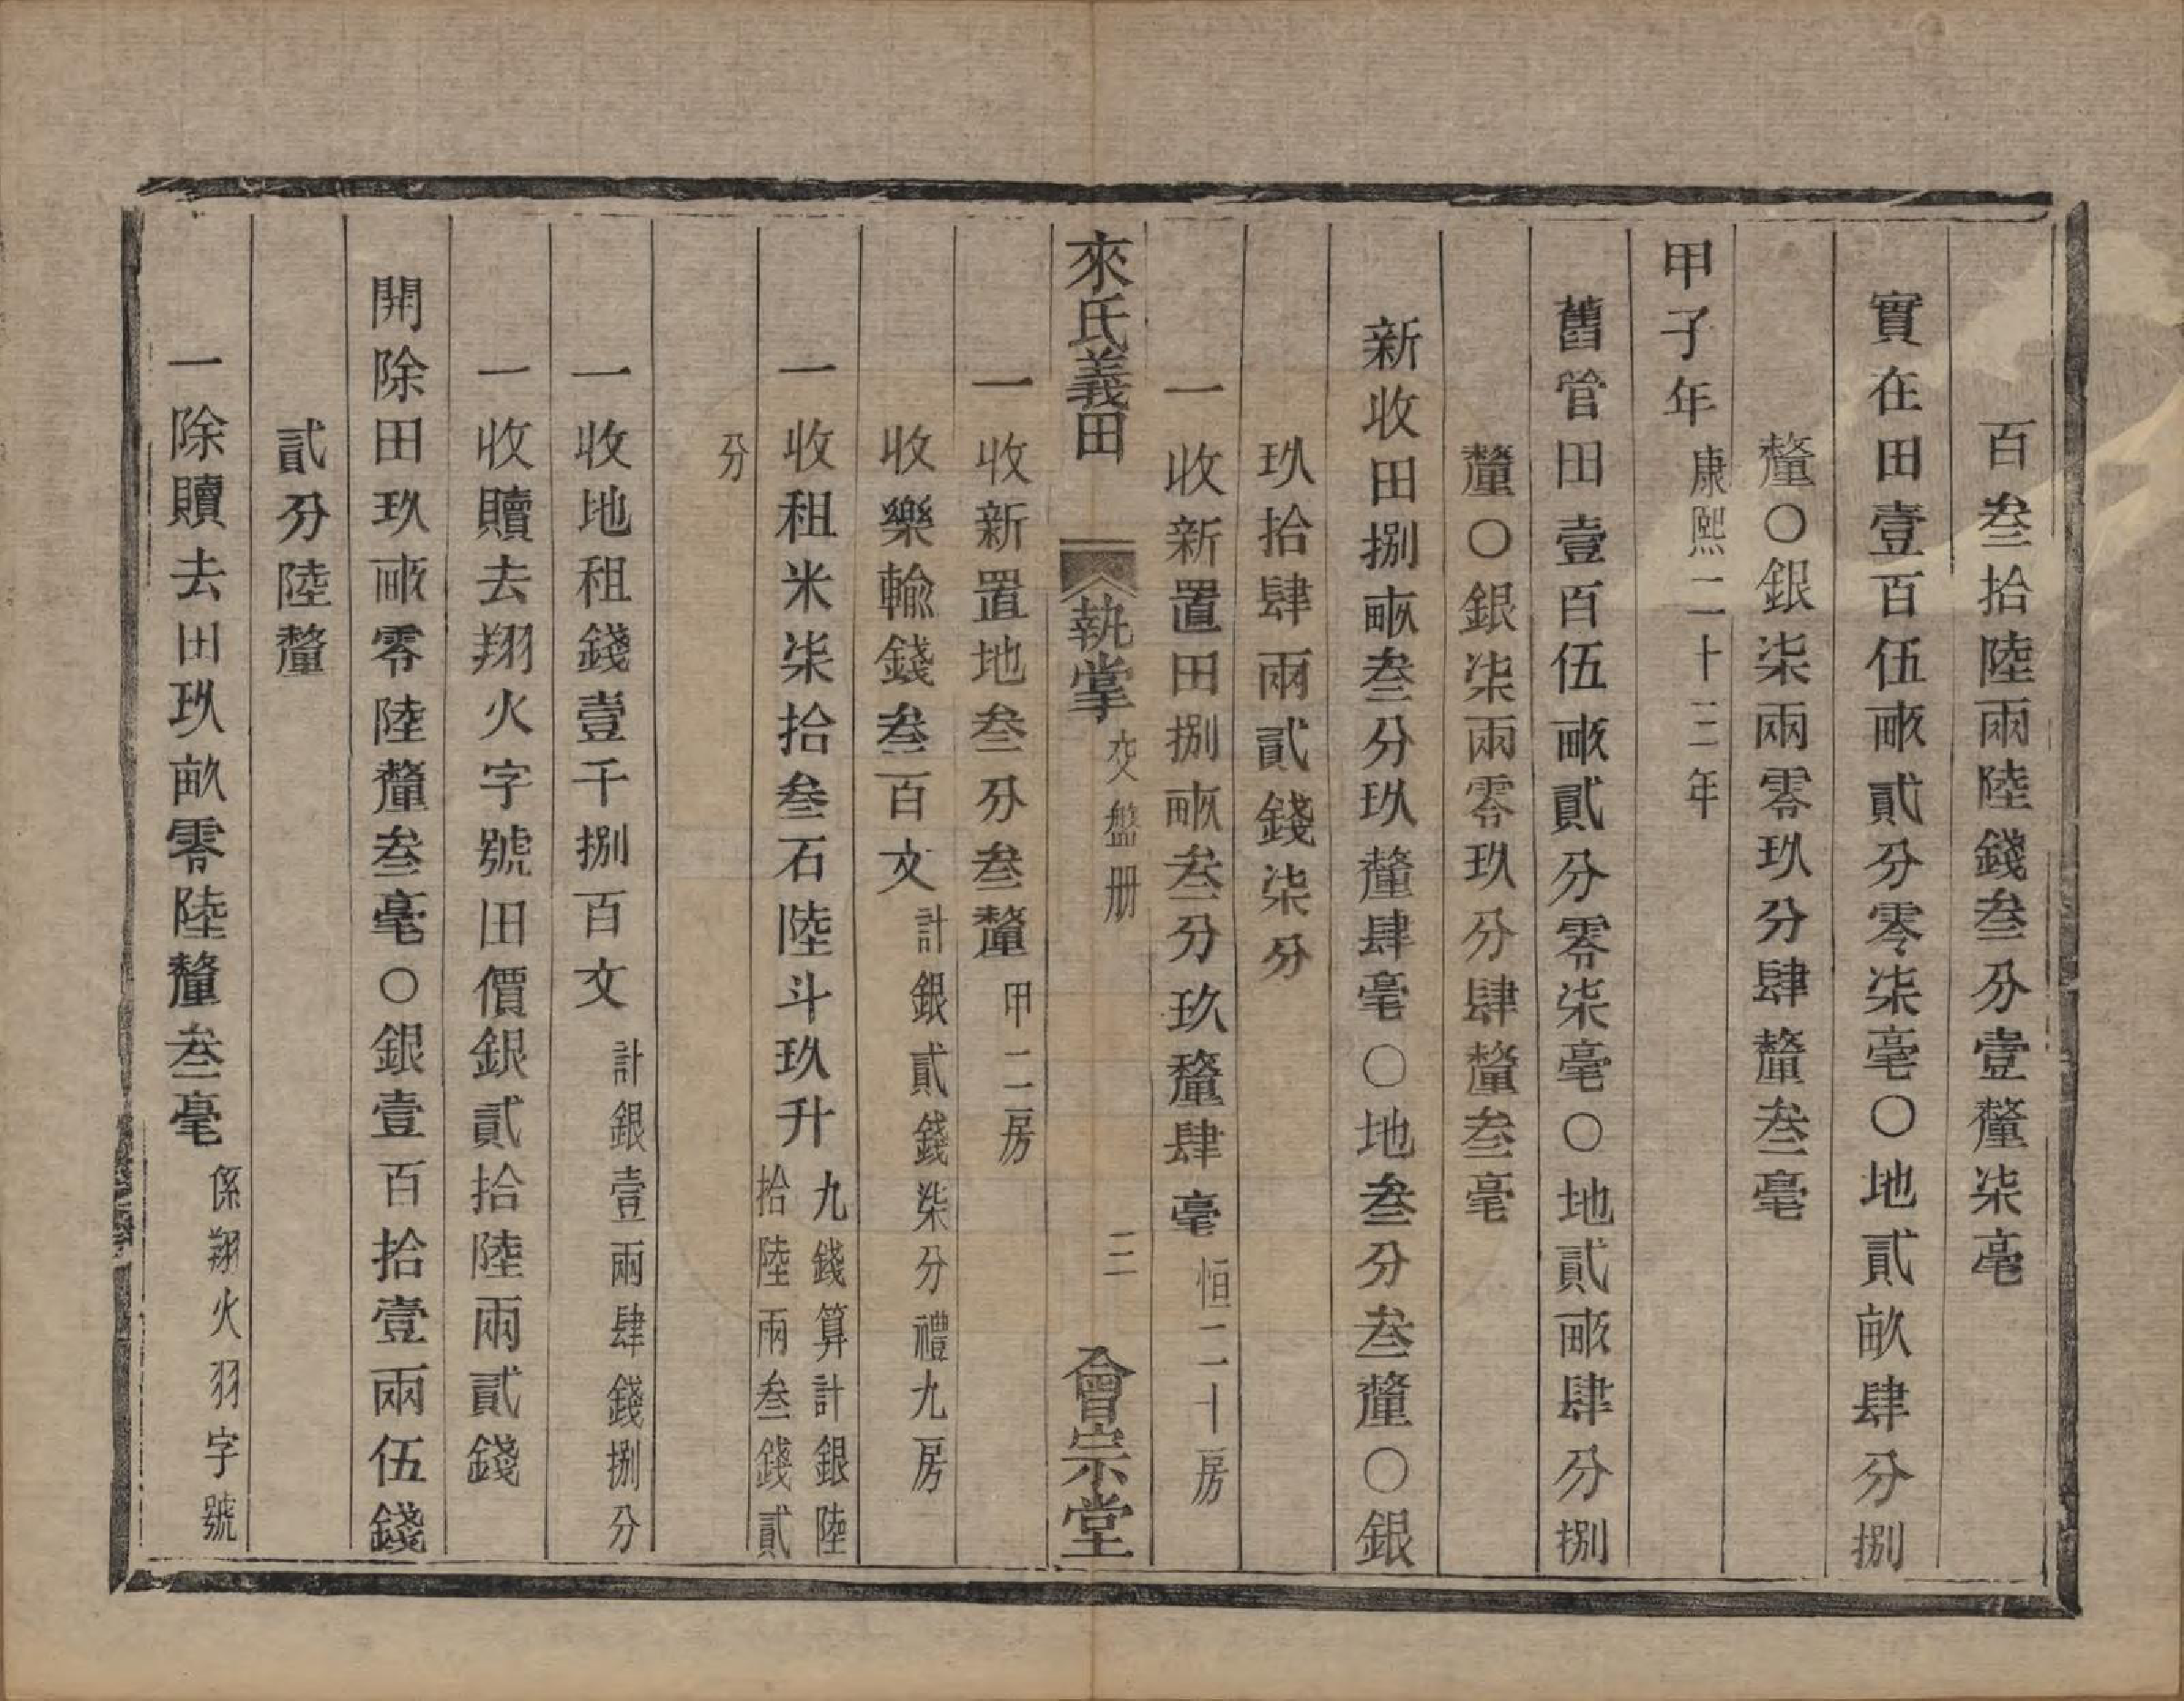 百叁拾陸兩陸錢叁分壹釐柒毫
實在田壹百伍畝貳分零柒毫〇地貳畝肆分捌
釐〇銀柒兩零玖分肆釐叁毫
甲子年康熙二十三年
舊管田壹百伍畝貳分零柒毫〇地貳畝肆分捌
釐〇銀柒兩零玖分肆釐叁毫
新收田捌畝叁分玖釐肆毫〇地叁分叁釐〇銀
玖拾肆兩貳錢柒分
一收新置田捌畝叁分玖釐肆毫恒二十房
來氏義田 執掌交盤册 三 會宗堂
一收新置地叁分叁釐甲二房
收樂輸錢叁百文計銀貳錢柒分禮九房
一收租米柒拾叁石陸斗玖升九錢算計銀陸
拾陸兩叁錢貳
分
一收地租錢壹千捌百文計銀壹兩肆錢捌分
一收贖去翔火字號田價銀貳拾陸兩貳錢
開除田玖畝零陸釐叁毫〇銀壹百拾壹兩伍錢
貳分陸釐
一除贖去田玖畝零陸釐叁毫係翔火羽字號